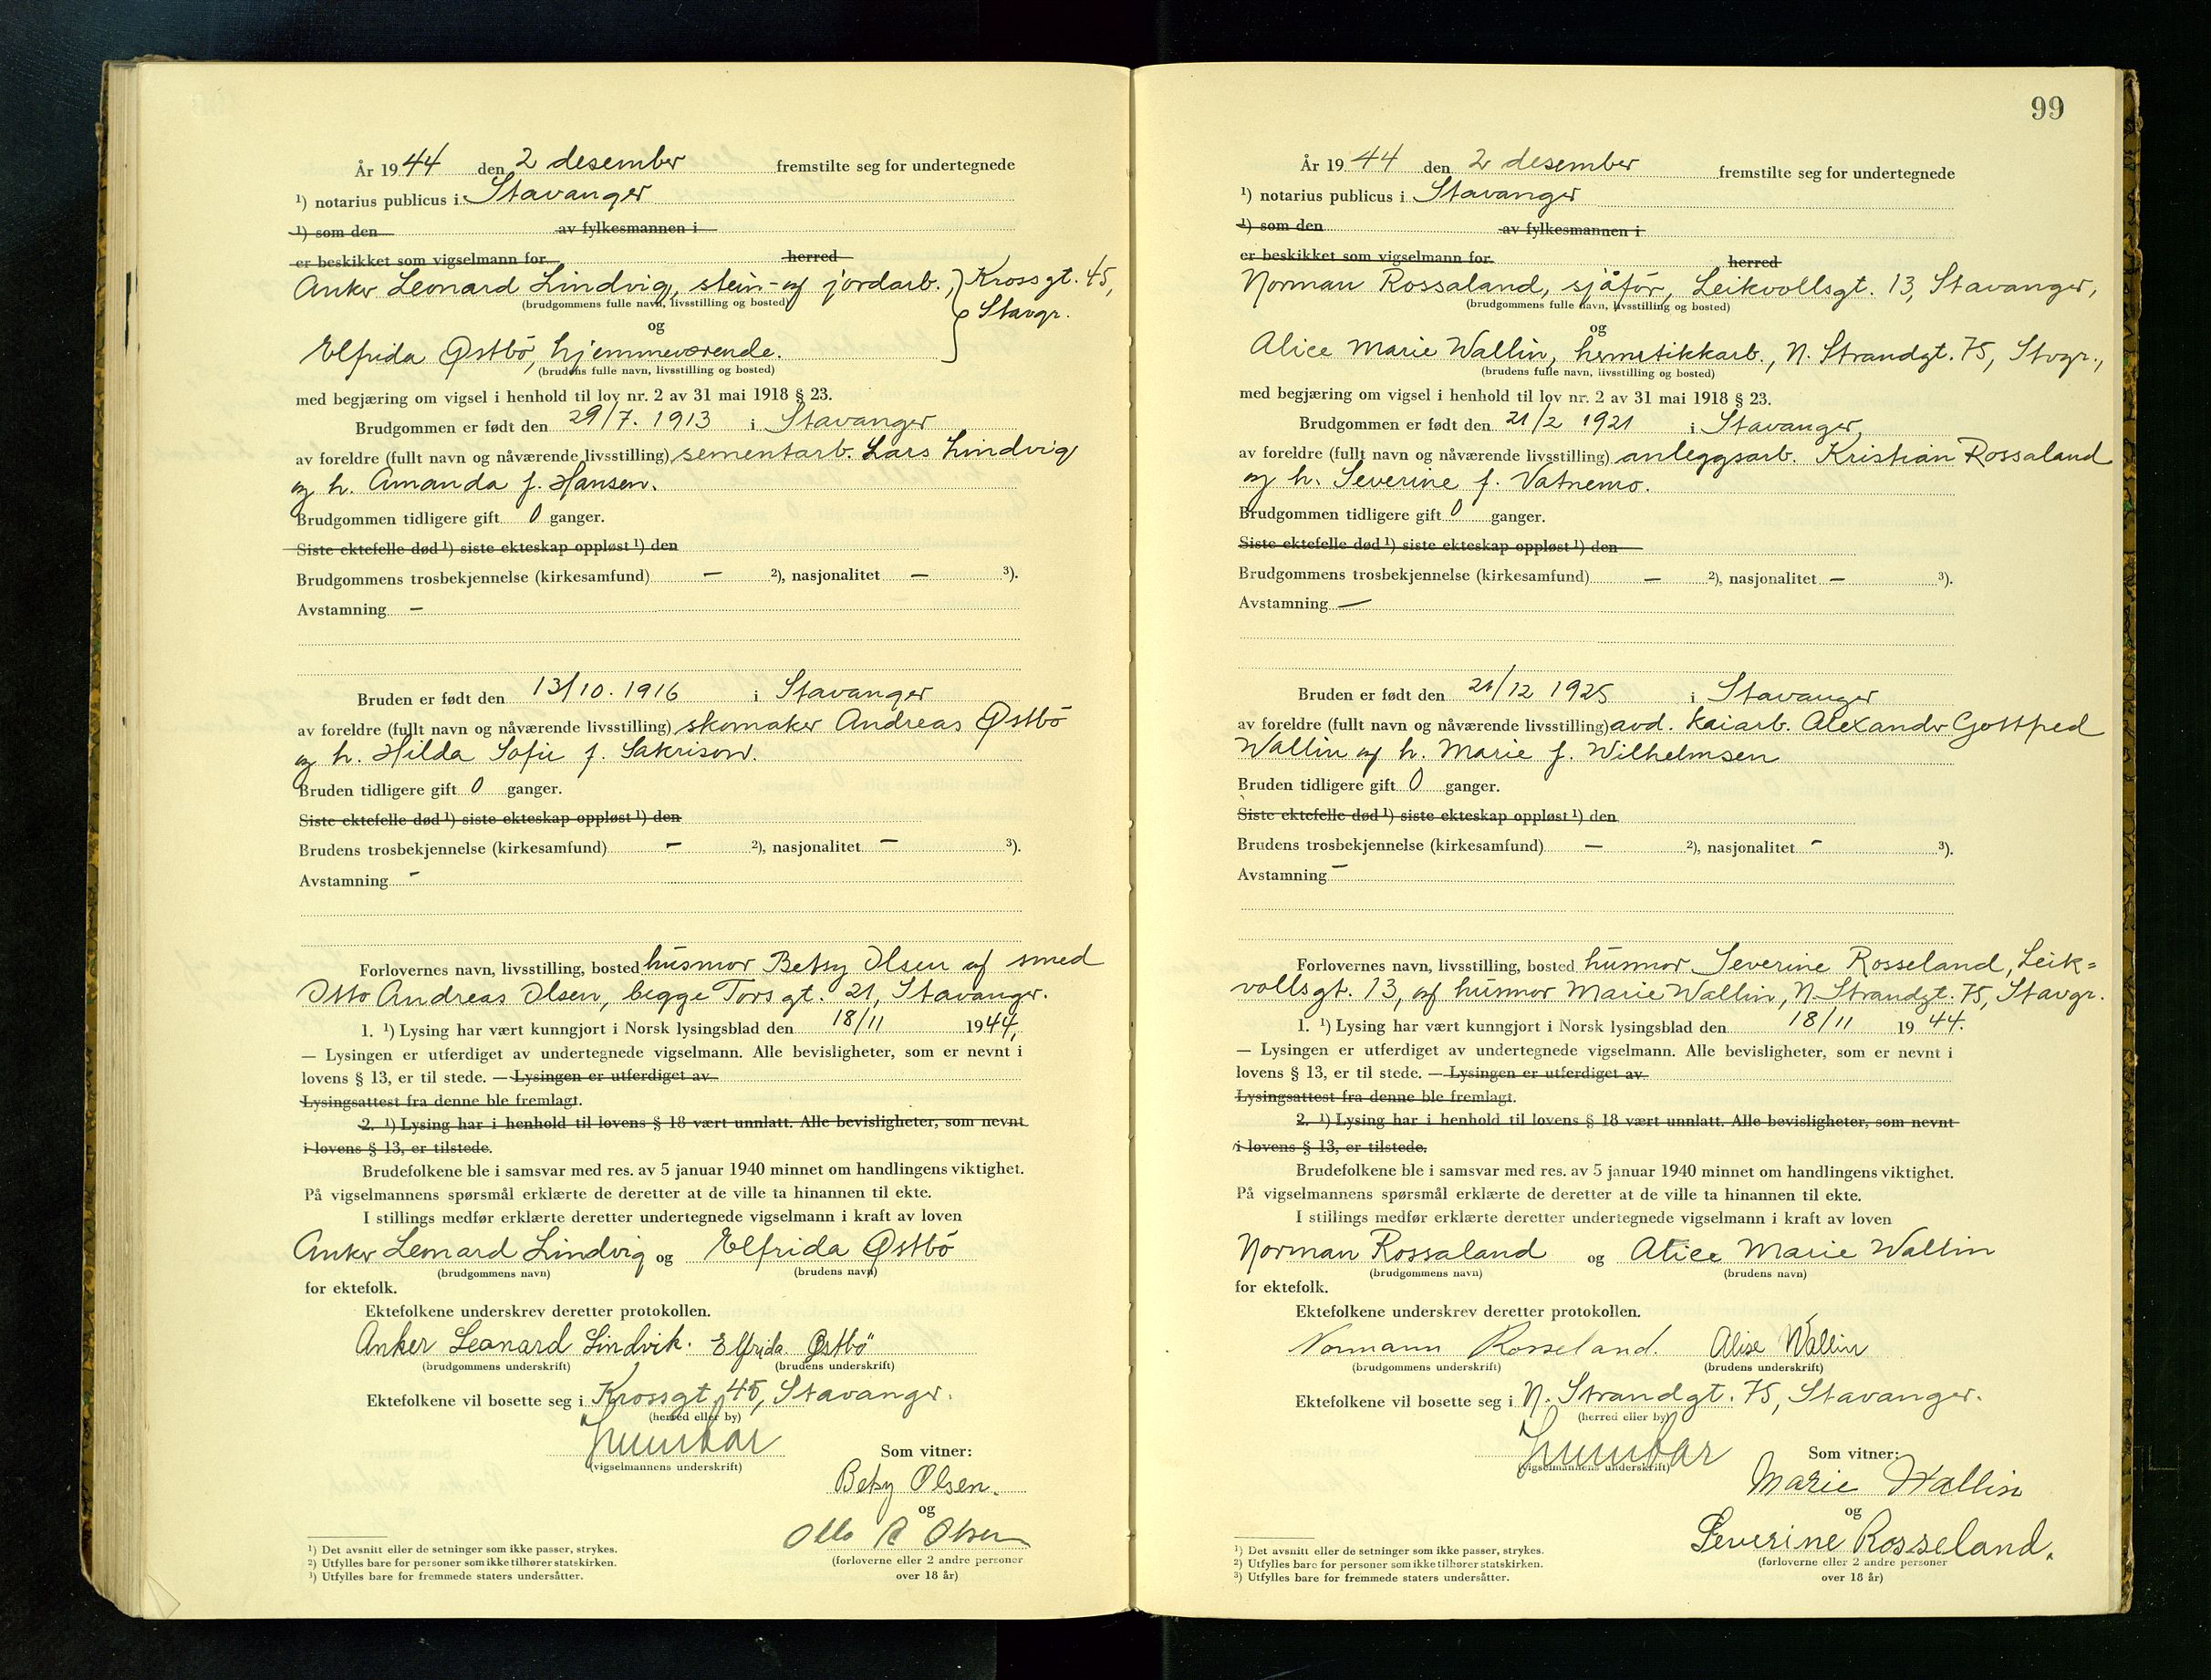 År 1944 den 2 desember fremstilte seg for undertegnede
¹) notarius publicus i Stavanger
¹) som den av fylkesmannen i
er beskikket som vigselmann for herred
Anker Leonard Lindvig, stein- og jordarb., } Krossgt. 45,
(brudgommens fulle navn, livsstilling og bosted) Stavgr.
og
Elfrida Østbö, hjemmeværende.
(brudens fulle navn, livsstilling og bosted)
med begjæring om vigsel i henhold til lov nr. 2 av 31 mai 1918 § 23.
Brudgommen er født den 29/7. 1913 i Stavanger
av foreldre (fullt navn og nåværende livsstilling) sementarb. Lars Lindvig
og h. Amanda f. Hansen.
Brudgommen tidligere gift 0 ganger.
Siste ektefelle død ¹) siste ekteskap oppløst ¹) den
Brudgommens trosbekjennelse (kirkesamfund) — ²), nasjonalitet — ³).
Avstamning —
Bruden er født den 13/10. 1916 i Stavanger
av foreldre (fullt navn og nåværende livsstilling) skomaker Andreas Østbö
og h. Hilda Sofie f. Sakrison.
Bruden tidligere gift 0 ganger.
Siste ektefelle død ¹) siste ekteskap oppløst ¹) den
Brudens trosbekjennelse (kirkesamfund) — ²), nasjonalitet — ³).
Avstamning -
Forlovernes navn, livsstilling, bosted husmor Betsy Olsen og smed
Otto Andreas Olsen, begge Torsgt. 21, Stavanger.
1. ¹) Lysing har vært kunngjort i Norsk lysingsblad den 18/11 1944,
— Lysingen er utferdiget av undertegnede vigselmann. Alle bevisligheter, som er nevnt i
lovens § 13, er til stede. — Lysingen er utferdiget av
Lysingsattest fra denne ble fremlagt.
2. ¹) Lysing har i henhold til lovens § 18 vært unnlatt. Alle bevisligheter, som nevnt
i lovens § 13, er tilstede.
Brudefolkene ble i samsvar med res. av 5 januar 1940 minnet om handlingens viktighet.
På vigselmannens spørsmål erklærte de deretter at de ville ta hinannen til ekte.
I stillings medfør erklærte deretter undertegnede vigselmann i kraft av loven
Anker Leonard Lindvig og Elfrida Østbö
(brudgommens navn) (brudens navn)
for ektefolk.
Ektefolkene underskrev deretter protokollen.
Anker Leonard Lindvik. Elfrida Østbö
(brudgommens underskrift) (brudens underskrift)
Ektefolkene vil bosette seg i Krossgt. 45, Stavanger.
(herred eller by)
(vigselmannens underskrift) Som vitner:
Betsy Olsen.
og
Otto A Olsen
(forloverne eller 2 andre personer
over 18 år)
¹) Det avsnitt eller de setninger som ikke passer, strykes.
²) Utfylles bare for personer som ikke tilhører statskirken.
³) Utfylles bare for fremmede staters undersåtter.
99
År 1944 den 2 desember fremstilte seg for undertegnede
¹) notarius publicus i Stavanger
¹) som den av fylkesmannen i
er beskikket som vigselmann for herred
Norman Rossaland, sjåför, Leikvollsgt. 13, Stavanger,
(brudgommens fulle navn, livsstilling og bosted)
og
Alice Marie Wallin, hermetikkarb., N. Strandgt. 75, Stvgr.,
(brudens fulle navn, livsstilling og bosted)
med begjæring om vigsel i henhold til lov nr. 2 av 31 mai 1918 § 23.
Brudgommen er født den 21/2 1921 i Stavanger,
av foreldre (fullt navn og nåværende livsstilling) anleggsarb. Kristian Rossaland
og h. Severine f. Vatnemo.
Brudgommen tidligere gift 0 ganger.
Siste ektefelle død ¹) siste ekteskap oppløst ¹) den
Brudgommens trosbekjennelse (kirkesamfund) — ²), nasjonalitet — ³).
Avstamning —
Bruden er født den 21/12 1925 i Stavanger
av foreldre (fullt navn og nåværende livsstilling) avd. kaiarb. Alexander Gottfred
Wallin og h. Marie f. Wilhelmsen
Bruden tidligere gift 0 ganger.
Siste ektefelle død ¹) siste ekteskap oppløst ¹) den
Brudens trosbekjennelse (kirkesamfund) — ²), nasjonalitet - ³).
Avstamning —
Forlovernes navn, livsstilling, bosted husmor Severine Rosseland, Leik=
vollsgt. 13, og husmor Marie Wallin, N. Strandgt. 75, Stavgr.
1. ¹) Lysing har vært kunngjort i Norsk lysingsblad den 18/11 1944.
— Lysingen er utferdiget av undertegnede vigselmann. Alle bevisligheter, som er nevnt i
lovens § 13, er til stede. — Lysingen er utferdiget av
Lysingsattest fra denne ble fremlagt.
2. ¹) Lysing har i henhold til lovens § 18 vært unnlatt. Alle bevisligheter, som nevnt
i lovens § 13, er tilstede.
Brudefolkene ble i samsvar med res. av 5 januar 1940 minnet om handlingens viktighet.
På vigselmannens spørsmål erklærte de deretter at de ville ta hinannen til ekte.
I stillings medfør erklærte deretter undertegnede vigselmann i kraft av loven
Norman Rossaland og Alice Marie Wallin
(brudgommens navn) (brudens navn)
for ektefolk.
Ektefolkene underskrev deretter protokollen.
Normann Rosseland. Alise Wallin
(brudgommens underskrift) (brudens underskrift)
Ektefolkene vil bosette seg i N. Strandgt. 75, Stavanger.
(herred eller by)
(vigselmannens underskrift) Som vitner:
Marie Wallin
og
Severine Rosseland.
(forloverne eller 2 andre personer
over 18 år)
¹) Det avsnitt eller de setninger som ikke passer, strykes.
²) Utfylles bare for personer som ikke tilhører statskirken.
³) Utfylles bare for fremmede staters undersåtter.